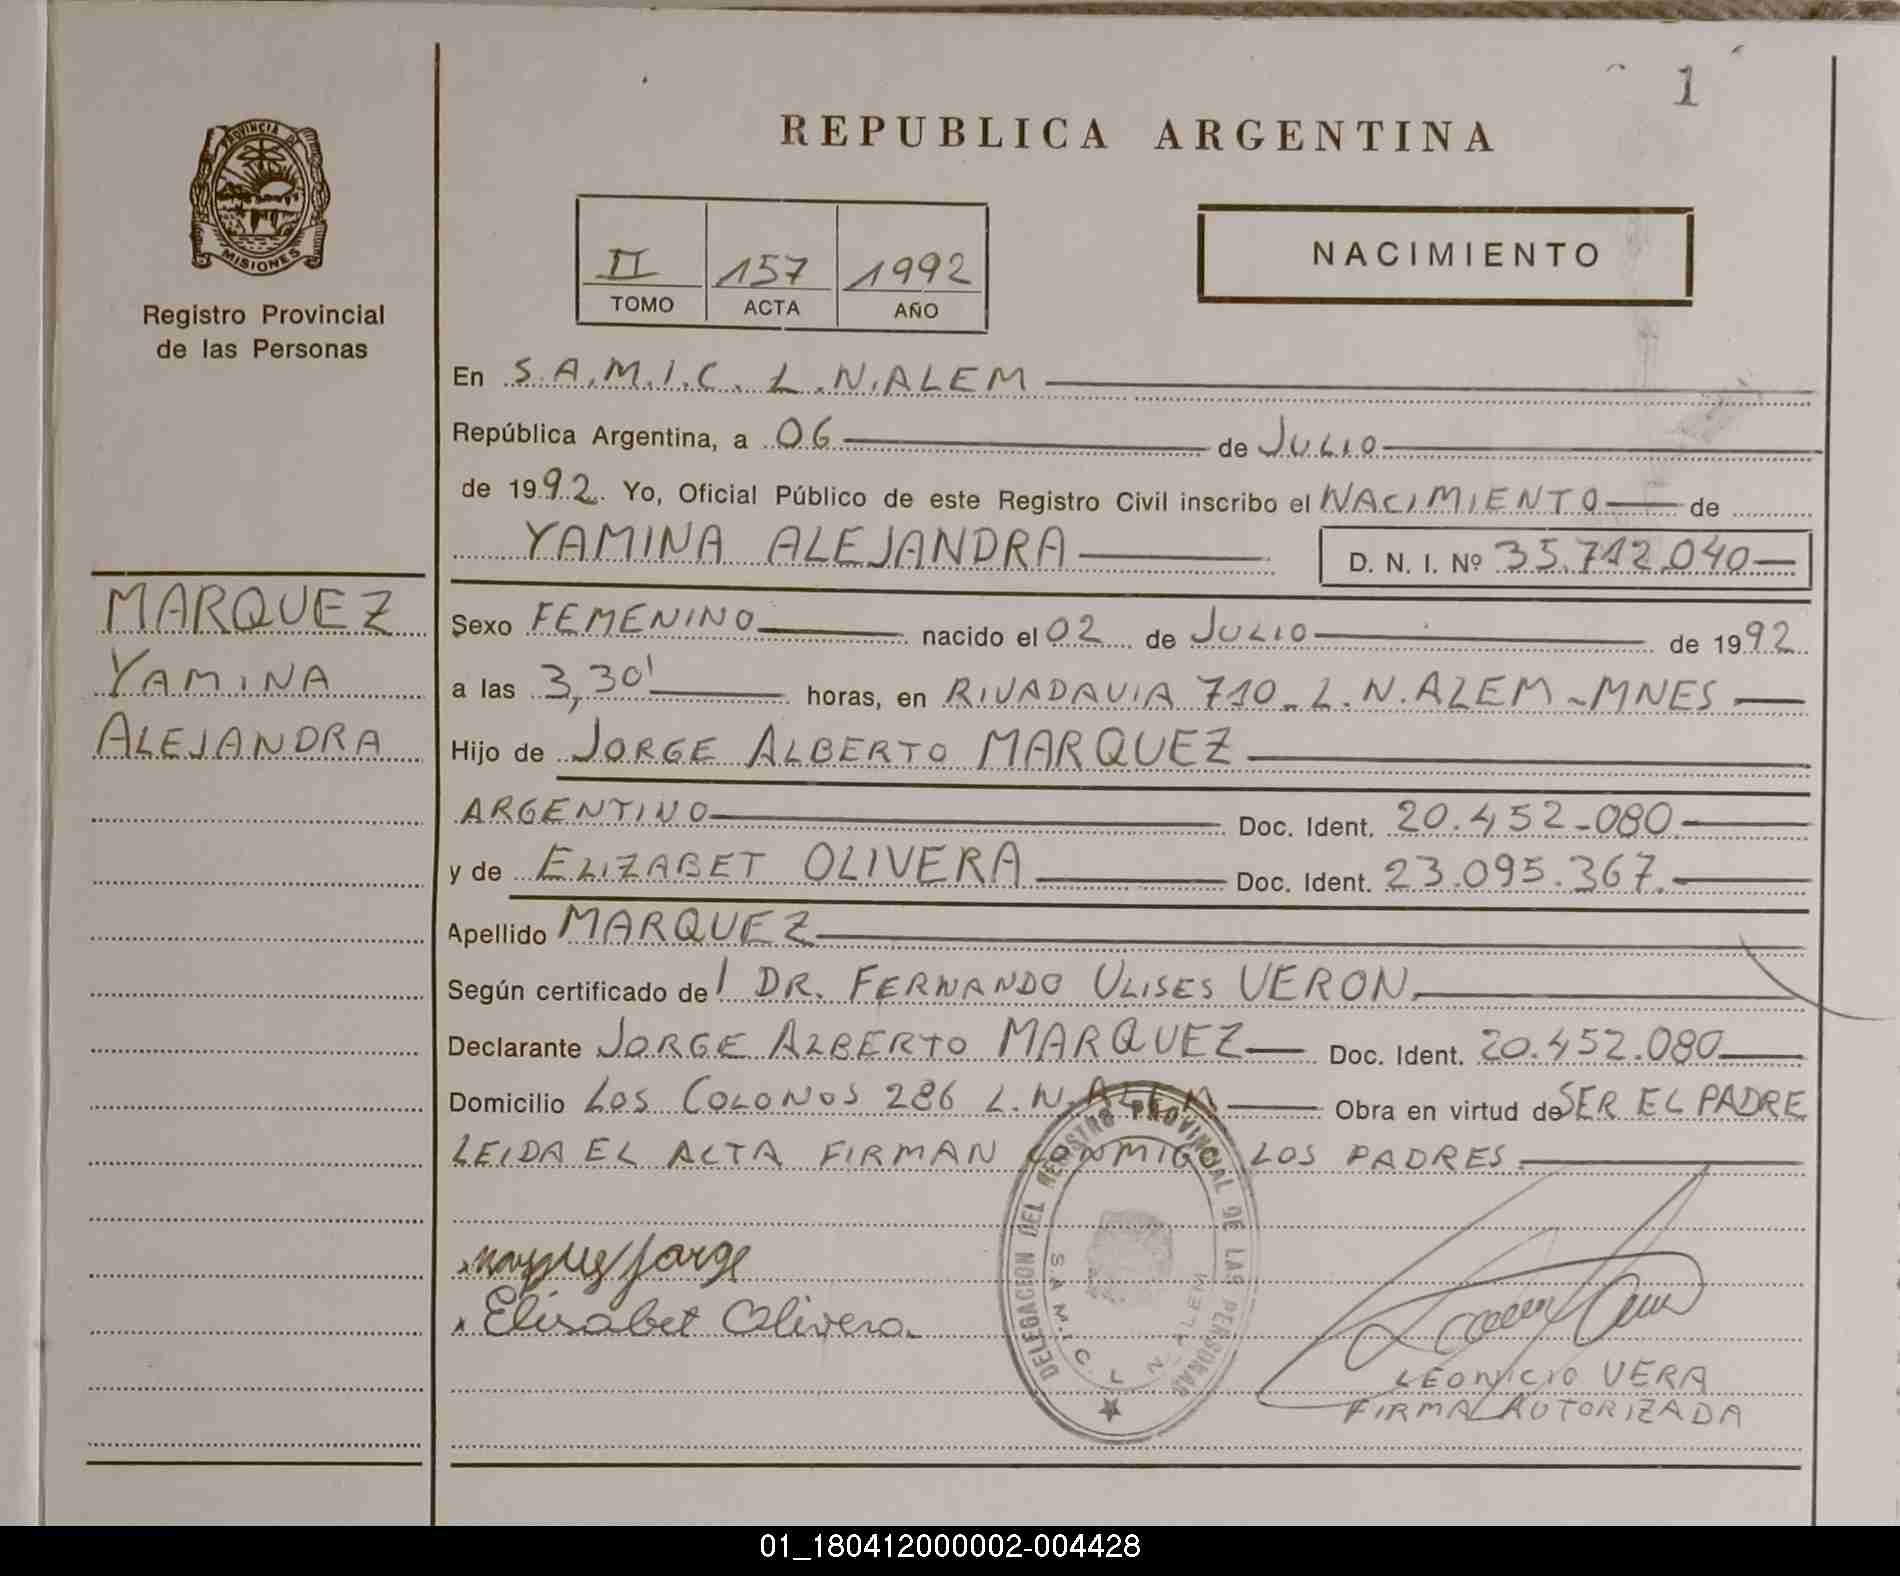 1
REPUBLICA ARGENTINA
PROVINCIA DE
MISIONES
Registro Provincial
de las Personas
II 157 1992
TOMO ACTA AÑO
NACIMIENTO
En S.A.M.I.C. L.N.ALEM
República Argentina, a 06 de JULIO
de 1992. Yo, Oficial Público de este Registro Civil inscribo el NACIMIENTO de
YAMINA ALEJANDRA D. N. I. Nº 35.712.040
MARQUEZ
YAMINA
ALEJANDRA
Sexo FEMENINO nacido el 02 de JULIO de 1992
a las 3,30' horas, en RIVADAVIA 710 - L.N.ALEM - MNES
Hijo de JORGE ALBERTO MARQUEZ
ARGENTINO Doc. Ident. 20.452.080
y de ELIZABET OLIVERA Doc. Ident. 23.095.367.
Apellido MARQUEZ
Según certificado del DR. FERNANDO ULISES VERON.
Declarante JORGE ALBERTO MARQUEZ Doc. Ident. 20.452.080
Domicilio LOS COLONOS 286 L.N.ALEM Obra en virtud de SER EL PADRE
LEIDA EL ACTA FIRMAN CONMIGO LOS PADRES
Marquez Jorge
Elisabet Olivera
DELEGACION DEL REGISTRO PROVINCIAL DE LAS PERSONAS
S.A.M.I.C. L.N. ALEM
LEONICIO VERA
FIRMA AUTORIZADA
01_180412000002-004428